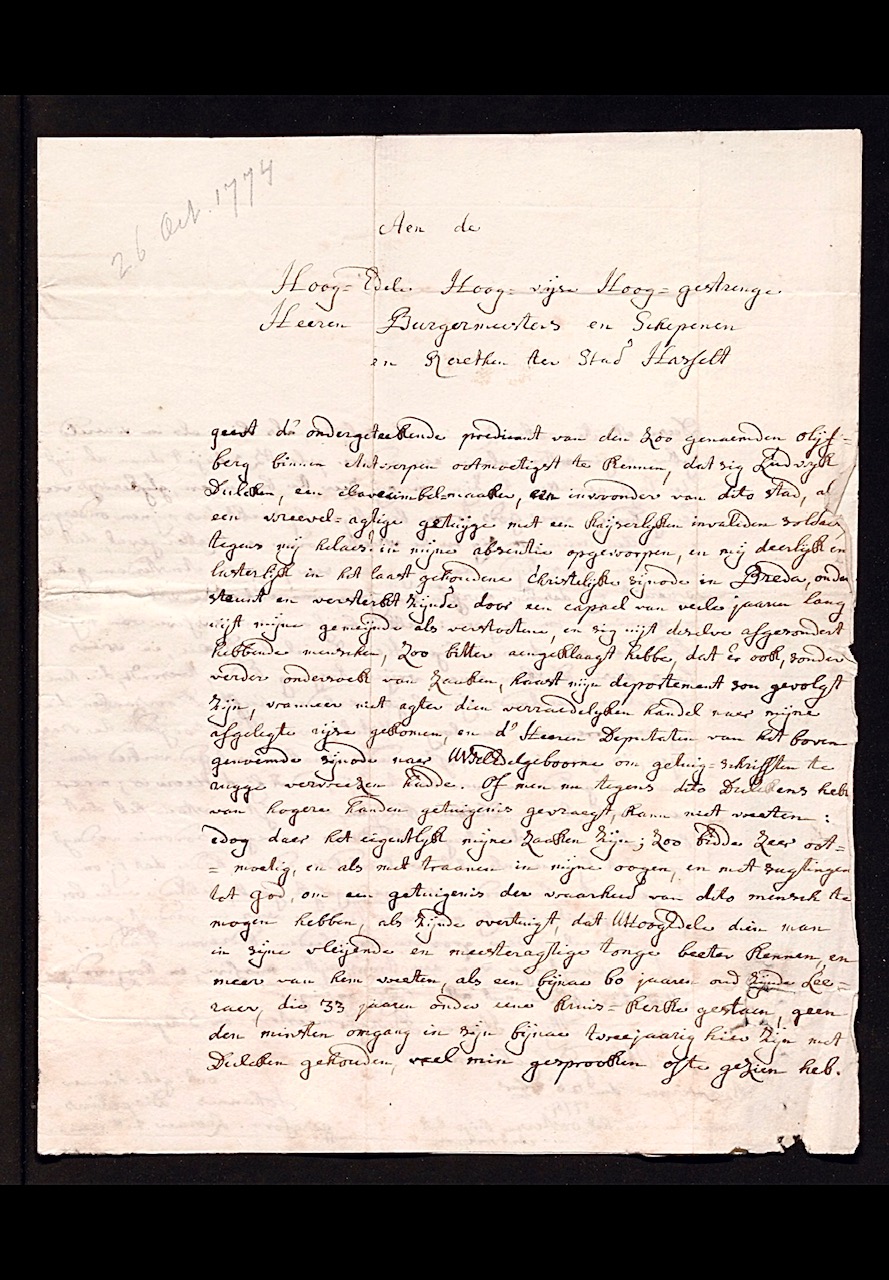 26 Oct. 1774
Aen de
Hoog=Edele Hoog=wijse Hoog=gestrenge
Heeren Burgermeesters en Schepenen
en Raethen der Stad Hasselt
geeft de ondergeteekende predicant van den zoo genaemden olijf=
berg binnen Antwerpen ootmoetigst te kennen, dat sig Ludwijk
Dulcken, een clavecimbel-maaker, en inwoonder van dito stad, al
een wreevel=agtige getuijge met een kaijserlijken invaliden soldaet
tegens mij helaes! in mijne absentie opgeworpen, en mij deerlijk en
lasterlijk in het laast gehoudene Christelijke sijnode in Breda, onder
steunt en versterkt zijnde door een capael van veele jaaren lang
uijt mijne gemeijnde als verstootene, en sig uijt deselve afgezondert
hebbende menschen, zoo bitter aengeklaagt hebbe, dat er ook, sonder
verder ondersoek van zaaken, haast mijn deportement sou gevolgt
zijn, wanneer niet agter dien verraedelijken handel naer mijne
afgelegte rijse gekomen, en de Heeren Deputaten van het boven
genoemde sijnode naer UWelEdelgeboorne om getuig=schriften te
rugge verweesen hadde. Of men nu tegens dito Dulckens heb
van hogere handen getuigenis gevraegt, kann niet weeten:
edog daer het eigentlijk mijne zaaken zijn; zoo bidde zeer oot=
=moetig, en als met traanen in mijne oogen, en met sugtingen
tot God, om een getuigenis der waarheid van dito mensch te
mogen hebben, als zijnde overtuigt, dat UHoogEdele dien man
in sijne vleijende en meesteragtige tonge beeter kennen, en
meer van hem weeten, als een bijnae 60 jaaren oud zijnde Lee=
raer, die 33 jaaren onder eene kruis=kerke gestaen, geen
den minsten omgang in sijn bijnae tweejaarig hier zijn met
Dulcken gehouden, veel min gesprooken ofte gezien heb.